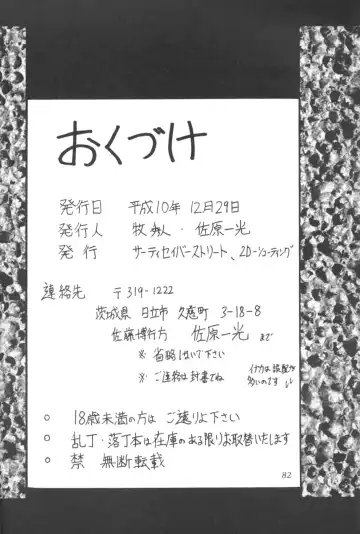 おくづけ
発行日 平成10年 12月29日
発行人 牧 秀人 · 佐原一光
発行 サーティセイバーストリート、2D-シューティング
連絡先 〒319-1222
茨城県 日立市 久慈町 3-18-8
佐藤博行方 佐原一光 まで
※ 省略しないで下さい
※ ご連絡は封書でね
イナカは誤配が
多いのです
○ 18歳未満の方は ご遠りよ下さい
○ 乱丁・落丁本は在庫のある限りお取替いたします
○ 禁 無断転載
82